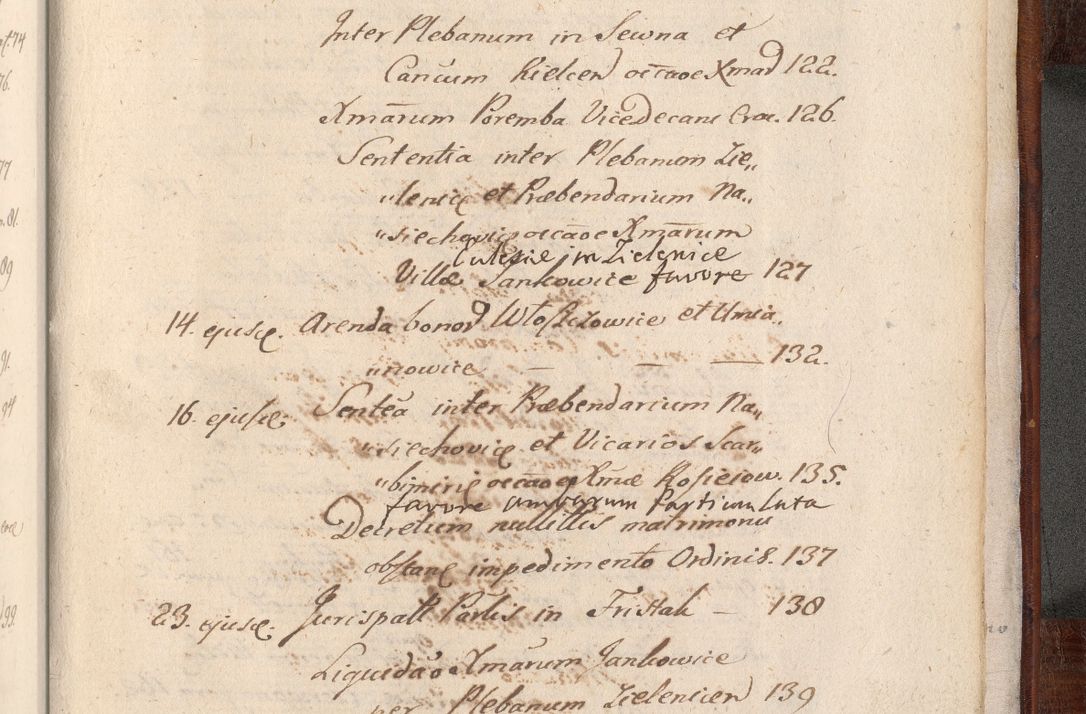 Inter Plebanum in Sewna et
Cancum Kielcen occãoe Xmaõ 122.
Xmãrum Poremba ViceDecani Crac. 126.
Sententia inter Plebanum Zie„
„lenic et Præbendarium Na„
„siechovic occãoe Xmãrum
Eclesie in Zielenice
Villæ Jankowice favore 127
14. ejusd. Arenda bonor Włoszczowice et Unia„
„nowice — — — 132.
16. ejusd. Sentẽa inter Præbendarium Na„
„siechovic et Vicarios Scar„
„bimiric occãoe Xmæ Kosiciow. 135.
favore ambarum Partium Lata
Decretum nullitis matrimonii
obstanc impedimento Ordinis. 137
23. ejusd. Jurispatt Parlis in Fristak — 138
Liquidaõ Xmãrum Jankowice
per Plebanum Zielenicen 139